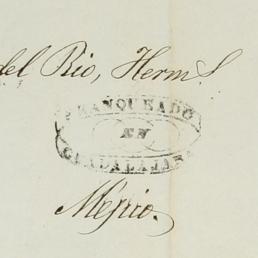 del Rio, Herm.s
FRANQUEADO
EN
GUADALAJARA
Méjico.